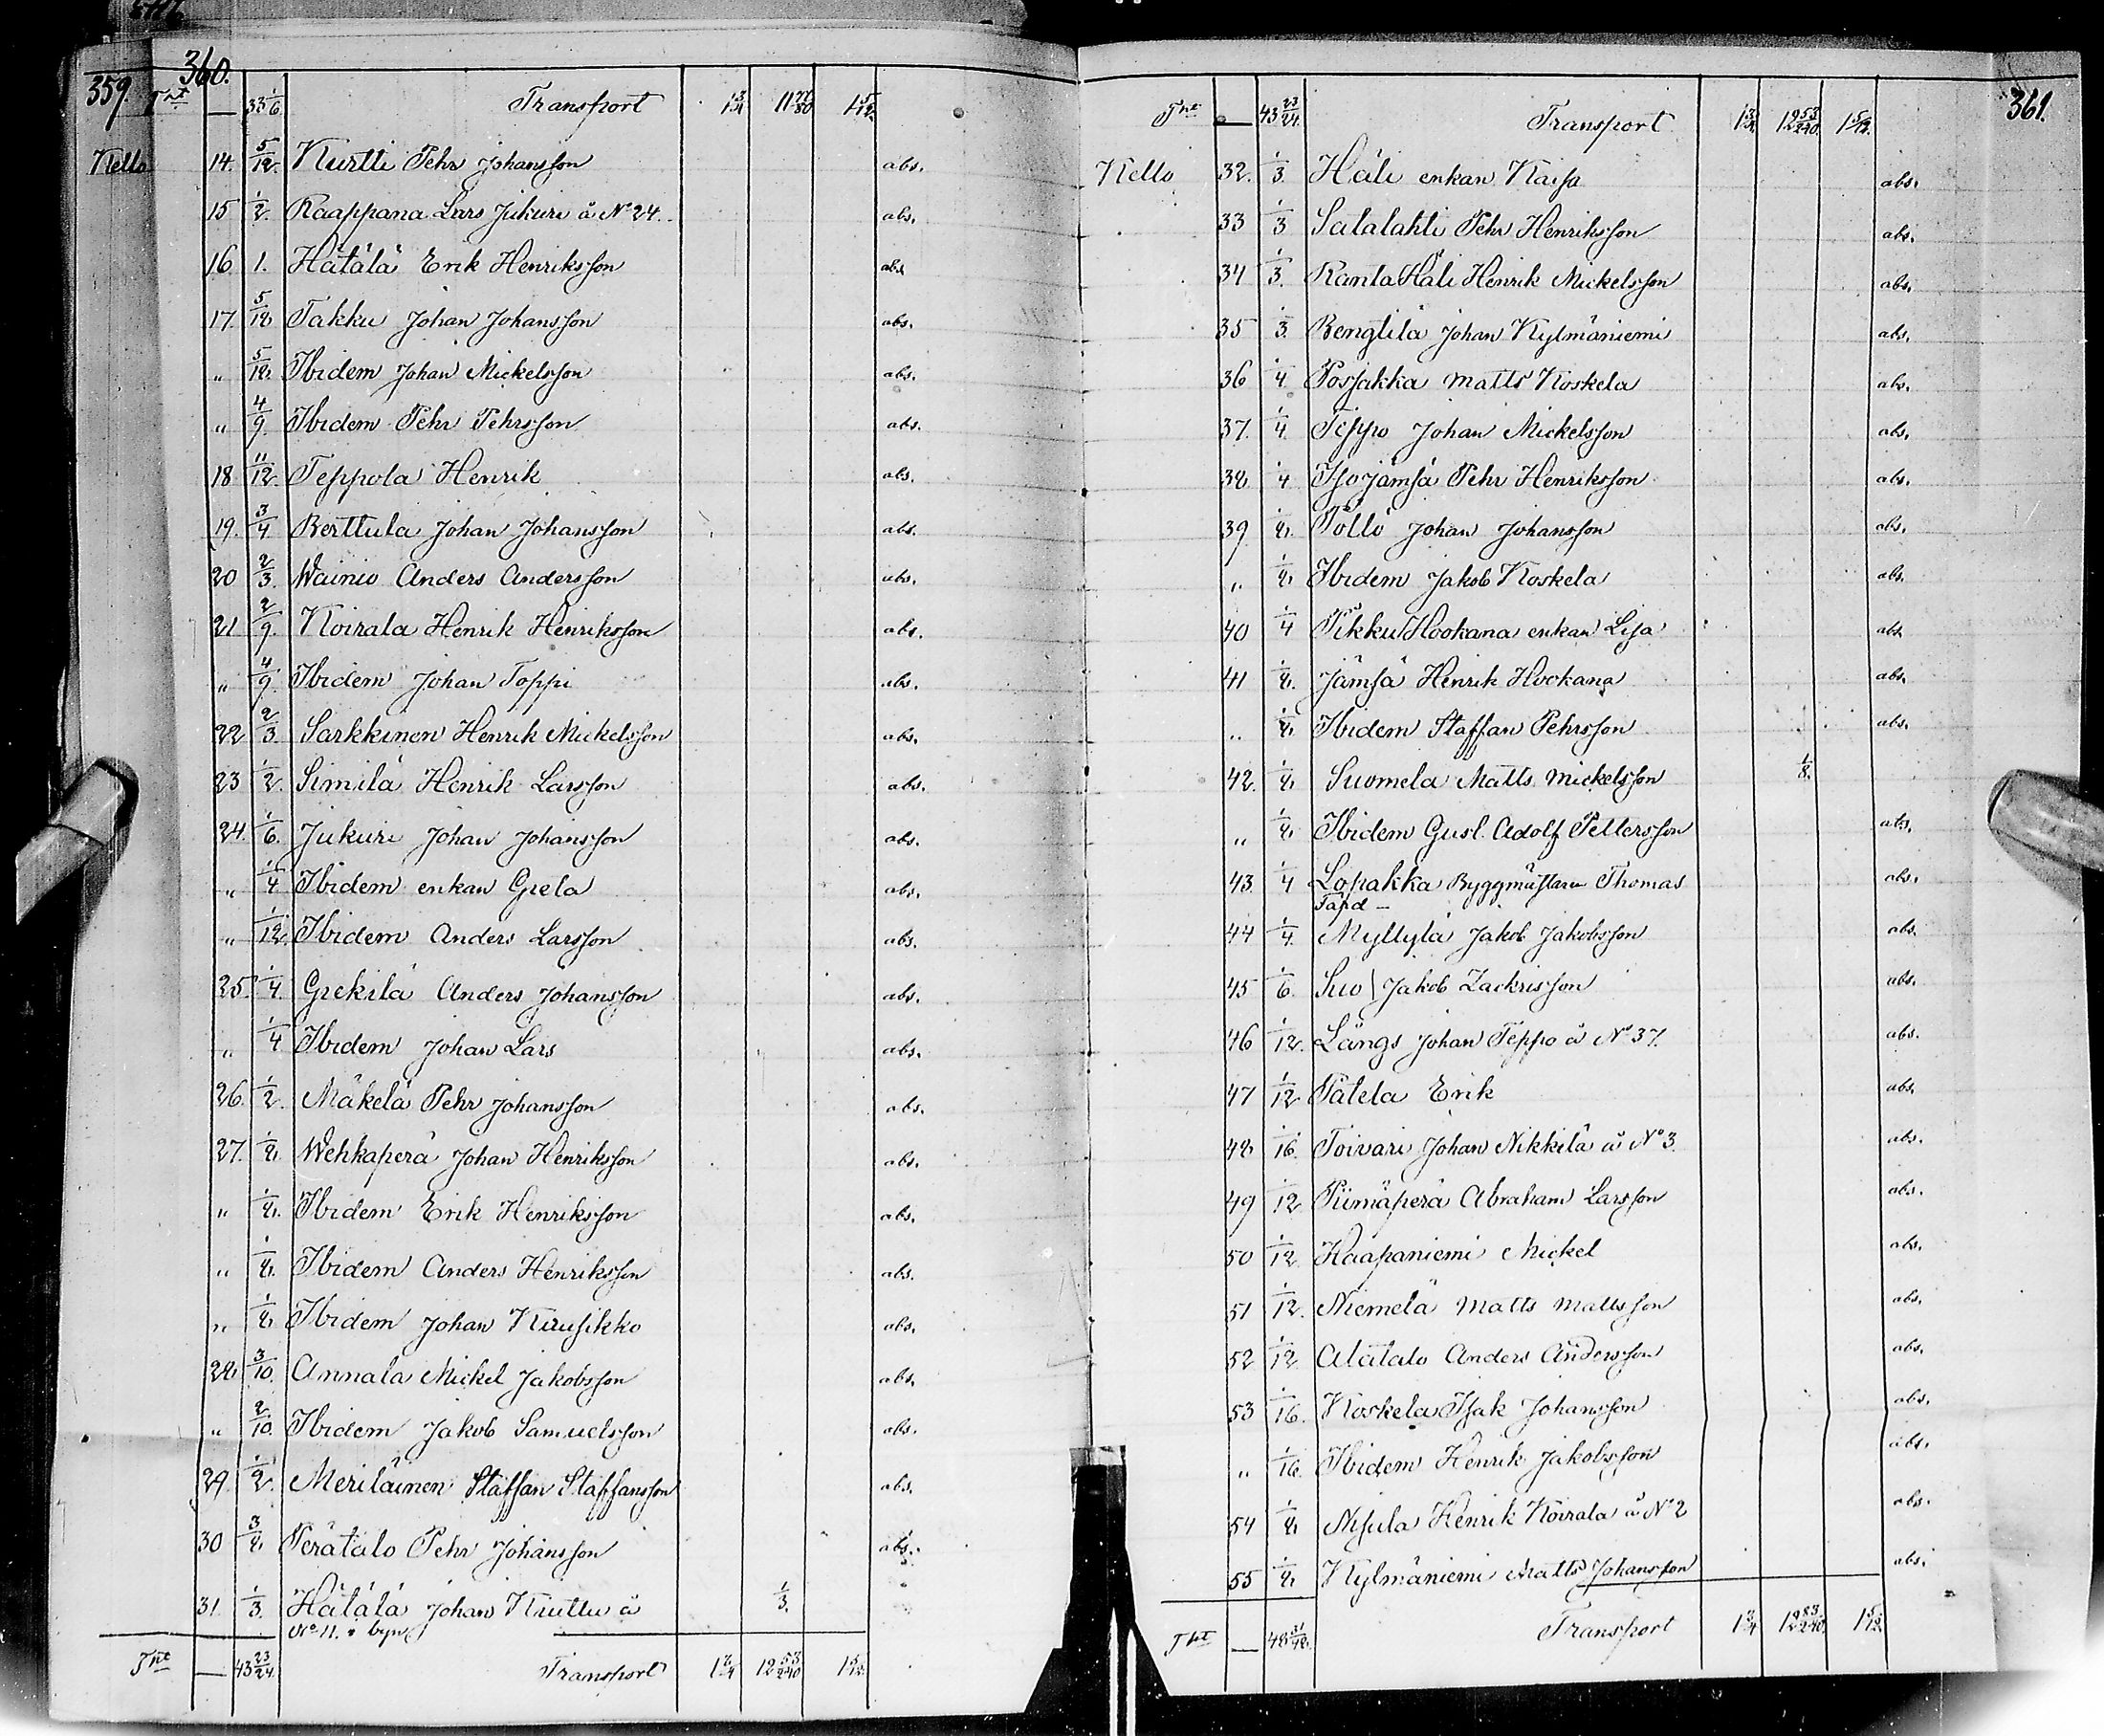 359. 360.
Trt — 33 1/6. Transport 1 3/4 11 77/80 1 5/12.
Kello 14. 5/12. Kurtti Pehr Johansson abs.
15 1/2. Raappana Lars Jukuri å No 24. abs.
16 1. Hätälä Erik Henriksson abs.
17. 5/12 Takku Johan Johansson abs.
" 5/12. Ibidem Johan Mickelsson abs.
" 4/9. Ibidem Pehr Pehrsson abs.
18 11/12. Teppola Henrik abs.
19. 3/4. Berttula Johan Johansson abs.
20 2/3. Wainio Anders Andersson abs.
21 2/9. Koirala Henrik Henriksson abs.
" 4/9. Ibidem Johan Toppi abs.
22 2/3. Sarkkinen Henrik Mickelsson abs.
23 1/2. Similä Henrik Larsson abs.
24. 1/6. Jukuri Johan Johansson abs.
" 1/4 Ibidem enkan Greta abs.
" 1/12. Ibidem Anders Larsson abs.
25. 1/4. Grekilä Anders Johansson abs.
" 1/4 Ibidem Johan Lars abs.
26. 1/2. Mäkelä Pehr Johansson abs.
27. 1/8. Wehkaperä Johan Henriksson abs.
" 1/8. Ibidem Erik Henriksson abs.
" 1/8. Ibidem Anders Henriksson abs.
" 1/8. Ibidem Johan Kirusikko abs.
28. 3/10. Annala Mickel Jakobsson abs.
" 2/10. Ibidem Jakob Samuelsson abs.
29. 1/2. Meriläinen Staffan Staffansson abs.
30 3/8. Perätalo Pehr Johansson abs.
31. 1/3. Hätälä Johan Kruttu å 1/3.
No 11. i byn
Trt — 43 23/24. Transport 1 3/4 12 53/240 1 5/12.
361.
Trt — 43 23/24. Transport 1 3/4. 12 53/240. 1 5/12.
Kello 32. 1/3. Häli enkan Kaisa abs.
33 1/3 Satalahti Pehr Henriksson abs.
34 1/3. Ranta Häli Henrik Mickelsson abs.
35 1/3. Bengtilä Johan Kylmäniemi abs.
36 1/4. Possakka Matts Koskela abs.
37. 1/4. Teppo Johan Mickelsson abs.
38 1/4 Isojämsä Pehr Henriksson abs.
39 1/8. Pöllö Johan Johansson abs.
" 1/8. Ibidem Jakob Koskela abs.
40 1/4 Pikku Hookana enkan Lisa abs.
41 1/8. Jämsä Henrik Hookana abs.
" 1/8. Ibidem Staffan Pehrsson abs.
42. 1/8. Suomela Matts Mickelsson 1/8.
" 1/8. Ibidem Gust. Adolf Pettersson abs.
43. 1/4 Lopakka Byggmästaren Thomas abs.
44 1/4. Myllylä Jakob Jakobsson abs.
45 1/6. Suo Jakob Zackrisson abs.
46 1/12. Längs Johan Teppo å No 37. abs.
47 1/12 Patela Erik abs.
48 1/16. Toivari Johan Nikkilä å No 3. abs.
49 1/12 Piimäperä Abraham Larsson abs.
50 1/12. Haapaniemi Mickel abs.
51 1/12. Niemelä Matts Mattsson abs.
52 1/12 Alatalo Anders Andersson abs.
53 1/16. Koskela Isak Johansson abs.
" 1/16. Ibidem Henrik Jakobsson abs.
54 1/8. Nisula Henrik Koirala å No 2 abs.
55 1/8. Kylmäniemi Matts Johansson abs.
Trt — 48 31/48. Transport 1 3/4 12 83/240. 1 5/12.